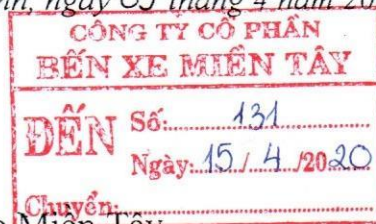 ngày 03 tháng 4 năm 20
CÔNG TY CỔ PHẦN
BẾN XE MIỀN TÂY
ĐẾN
Số: 131
Ngày: 15 / 4 /2020
Chuyển:
Miền Tây